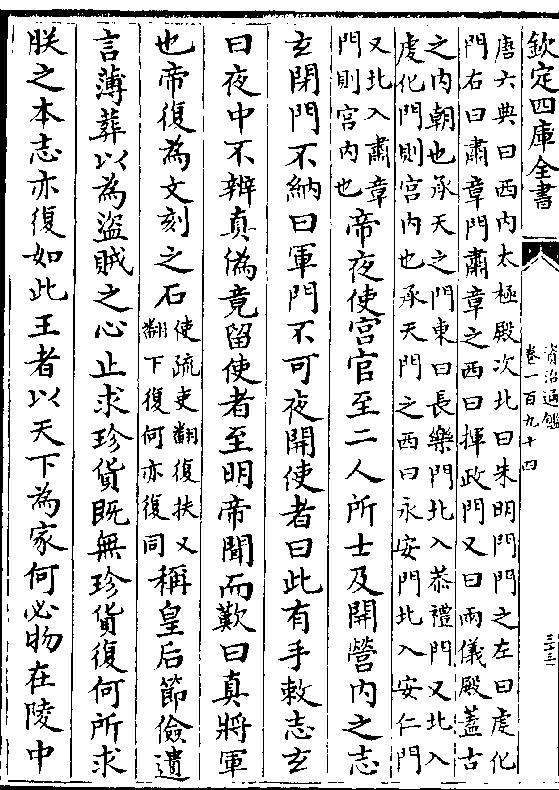 欽定四庫全書
資治通鑑
卷一百九十四
唐六典曰西内太極殿次北曰朱明門門之左曰虔化
門右曰肅章門肅章之西曰揮政門又曰兩儀殿蓋古
之内朝也承天之門東曰長樂門北入恭禮門又北入
虔化門則宫内也承天門之西曰永安門北入安仁門
又北入肅章
門則宫内也
帝夜使宫官至二人所士及開營内之志
玄閉門不納曰軍門不可夜開使者曰此有手敕志玄
曰夜中不辨真偽竟留使者至明帝聞而歎曰真將軍
也帝復為文刻之石
使疏吏翻復扶又
翻下復何亦復同
稱皇后節儉遺
言薄葬以為盜賊之心止求珍貨既無珍貨復何所求
朕之本志亦復如此王者以天下為家何必物在陵中